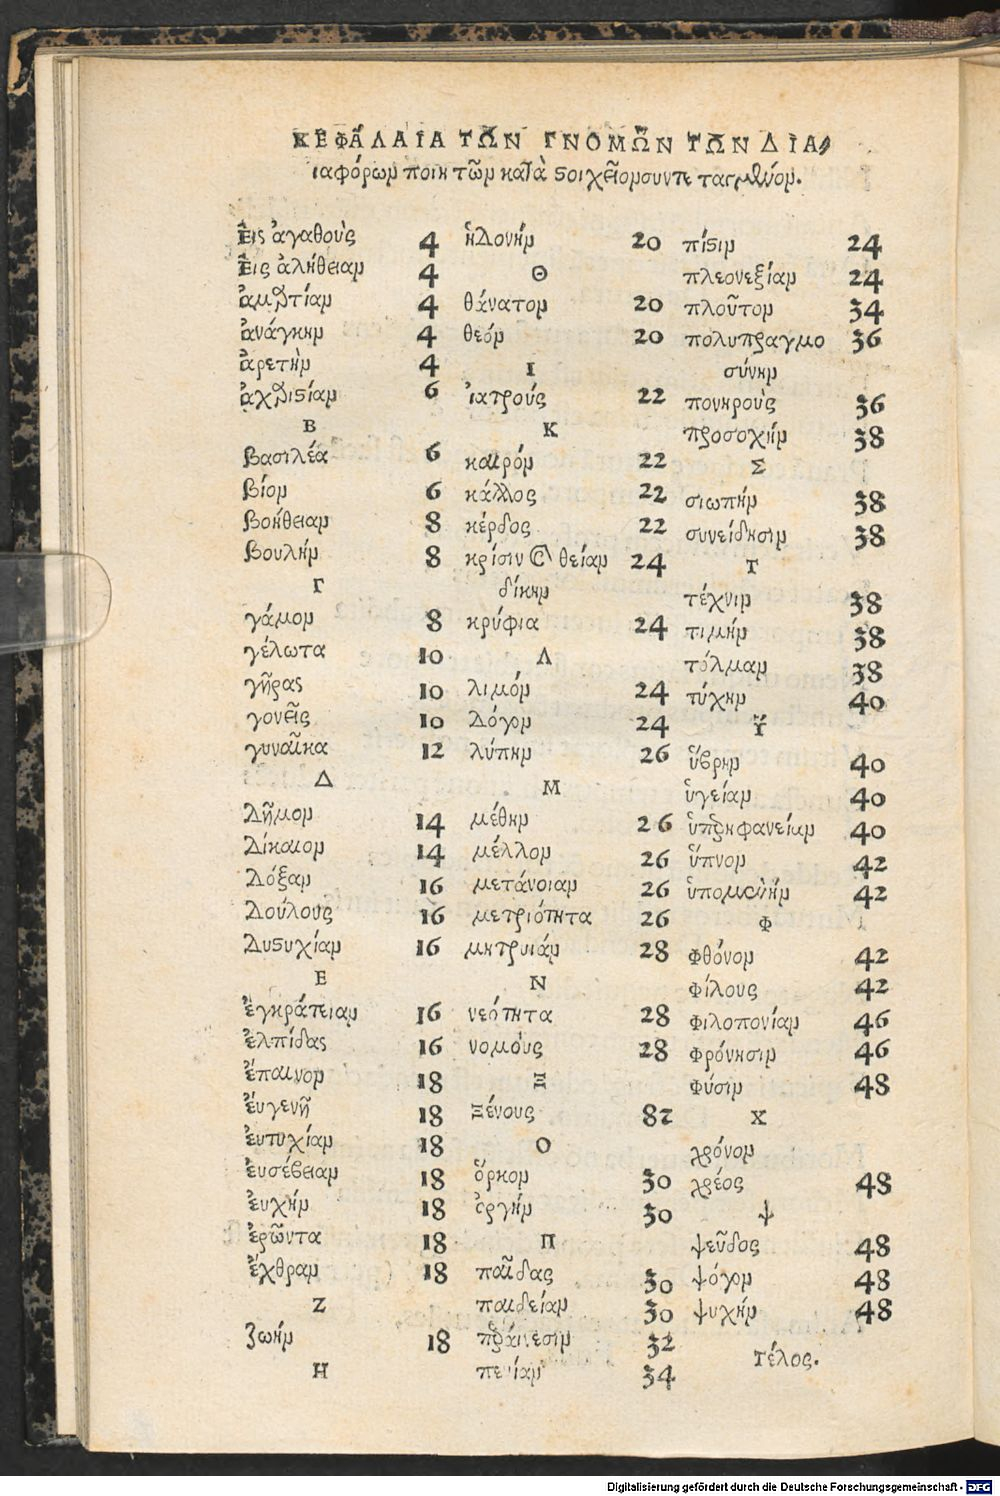 ΚΕΦΑΛΑΙΑ ΤΩ͂Ν ΓΝΟΜΩ͂Ν ΤΩΝ ΔΙΑ,
ιαφόρων ποιητῶν κατὰ ϛοιχεῖον
Εἰς ἀγαθοὺς 4
Εἰς ἀλήθειαν 4
ἁμαρτίαν 4
ἀνάγκην 4
ἀρετὴν 4
ἀχαριϛίαν 6
Β
βασιλέα 6
βίον 6
βοήθειαν 8
βουλήν 8
Γ
γάμον 8
γέλωτα 10
γῆρας 10
γονεῖς 10
γυναῖκα 12
Δ
Δῆμον 14
Δίκαιον 14
Δόξαν 16
Δούλους 16
Δυϛυχίαν 16
Ε
ἐγκράτειαν 16
ἐλπίδας 16
ἔπαινον 18
ἐυγενῆ 18
ἐυτυχίαν 18
ἐυσέβειαν 18
ἐυχήν 18
ἐρῶντα 18
ἔχθραν 18
Ζ
ζωήν 18
Η
ἡδονήν 20
Θ
θάνατον 20
θεόν 20
Ι
ἰατρούς 22
Κ
καιρόν 22
κάλλος 22
κέρδος 22
κρίσιν θείαν 24
δίκην
κρύφια 24
Λ
λιμόν 24
λόγον 24
λύπην 26
Μ
μέθην 26
μέλλον 26
μετάνοιαν 26
μετριότητα 26
μητρυιάν 28
Ν
νεότητα 28
νομοὺς 28
Ξ
Ξένους 82
Ο
ὅρκον 30
ὀργήν 30
Π
παῖδας 30
παιδείαν 30
παραίνεσιν 32
πενίαν 34
πίϛιν 24
πλεονεξίαν 24
πλοῦτον 34
πολυπραγμο 36
σύνην
πονηροὺς 36
προσοχήν 38
Σ
σιωπήν 38
συνείδησιν 38
Τ
τέχνιν 38
τιμήν 38
τόλμαν 38
τύχην 40
Υ
ὕβρην 40
ὑγείαν 40
ὑπερηφανείαν 40
ὕπνον 42
ὑπομονήν 42
Φ
Φθόνον 42
Φίλους 42
Φιλοπονίαν 46
Φρόνησιν 46
Φύσιν 48
Χ
χρόνον
χρέος 48
Ψ
ψεῦδος 48
ψόγον 48
ψυχήν 48
τέλος.
Digitalisierung gefördert durch die Deutsche Forschungsgemeinschaft - DFG